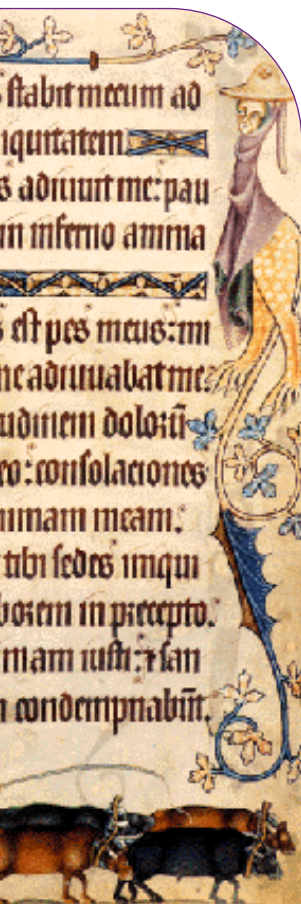 s stabit mecum ad
iniquitatem
s adiuuit me: pau
in inferno anima
s est pes meus: mi
ne adiuuabat me:
tudinem dolorū
eo: consolaciones
animam meam.
tibi sedes iniqui
borem in precepto.
imam iusti: ⁊ san
condempnabūt.